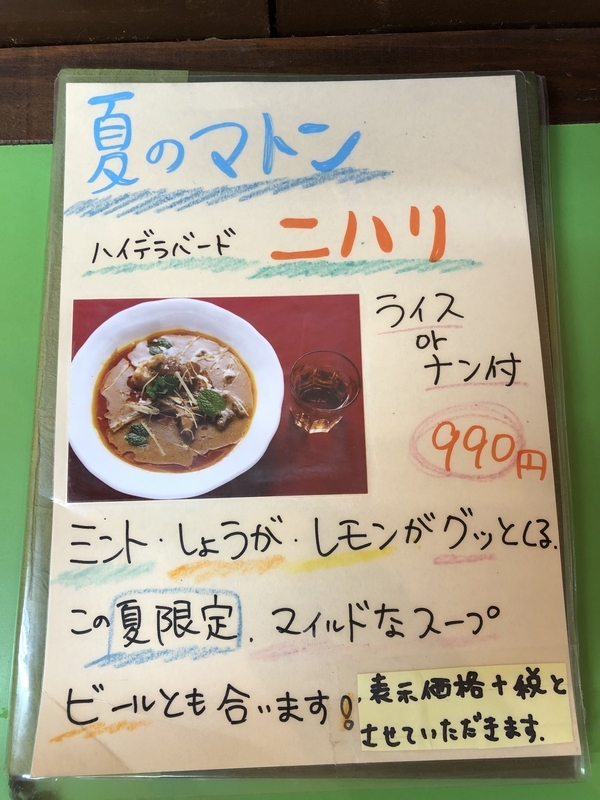 夏のマトン
ハイデラバード ニハリ
ライス
or
ナン付
990円
ミント・しょうが・レモンがグッとくる.
この夏限定. マイルドなスープ
ビールとも合います!
表示価格+税と
させていただきます.